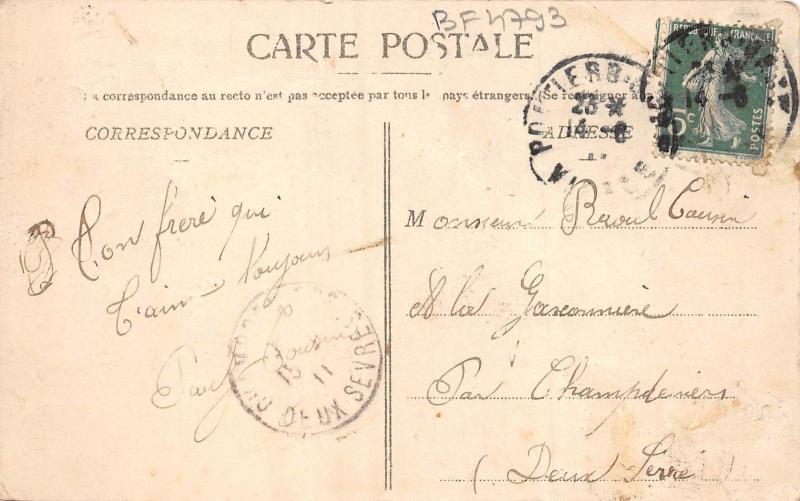 BF4793
CARTE POSTALE
La correspondance au recto n'est pas acceptée par tous les pays étrangers. Se renseigner à la
CORRESPONDANCE
ADRESSE
REPUBLIQUE FRANÇAISE
POSTES
5c
POITIERS
23
14 -8
14 -8
Ton frère qui
t'aime toujours
Paul Cousin
15
8
11
DEUX SEVRES
Monsieur Raoul Cousin
A la Garconnière
Par Champdeniers
(Deux Sevres)